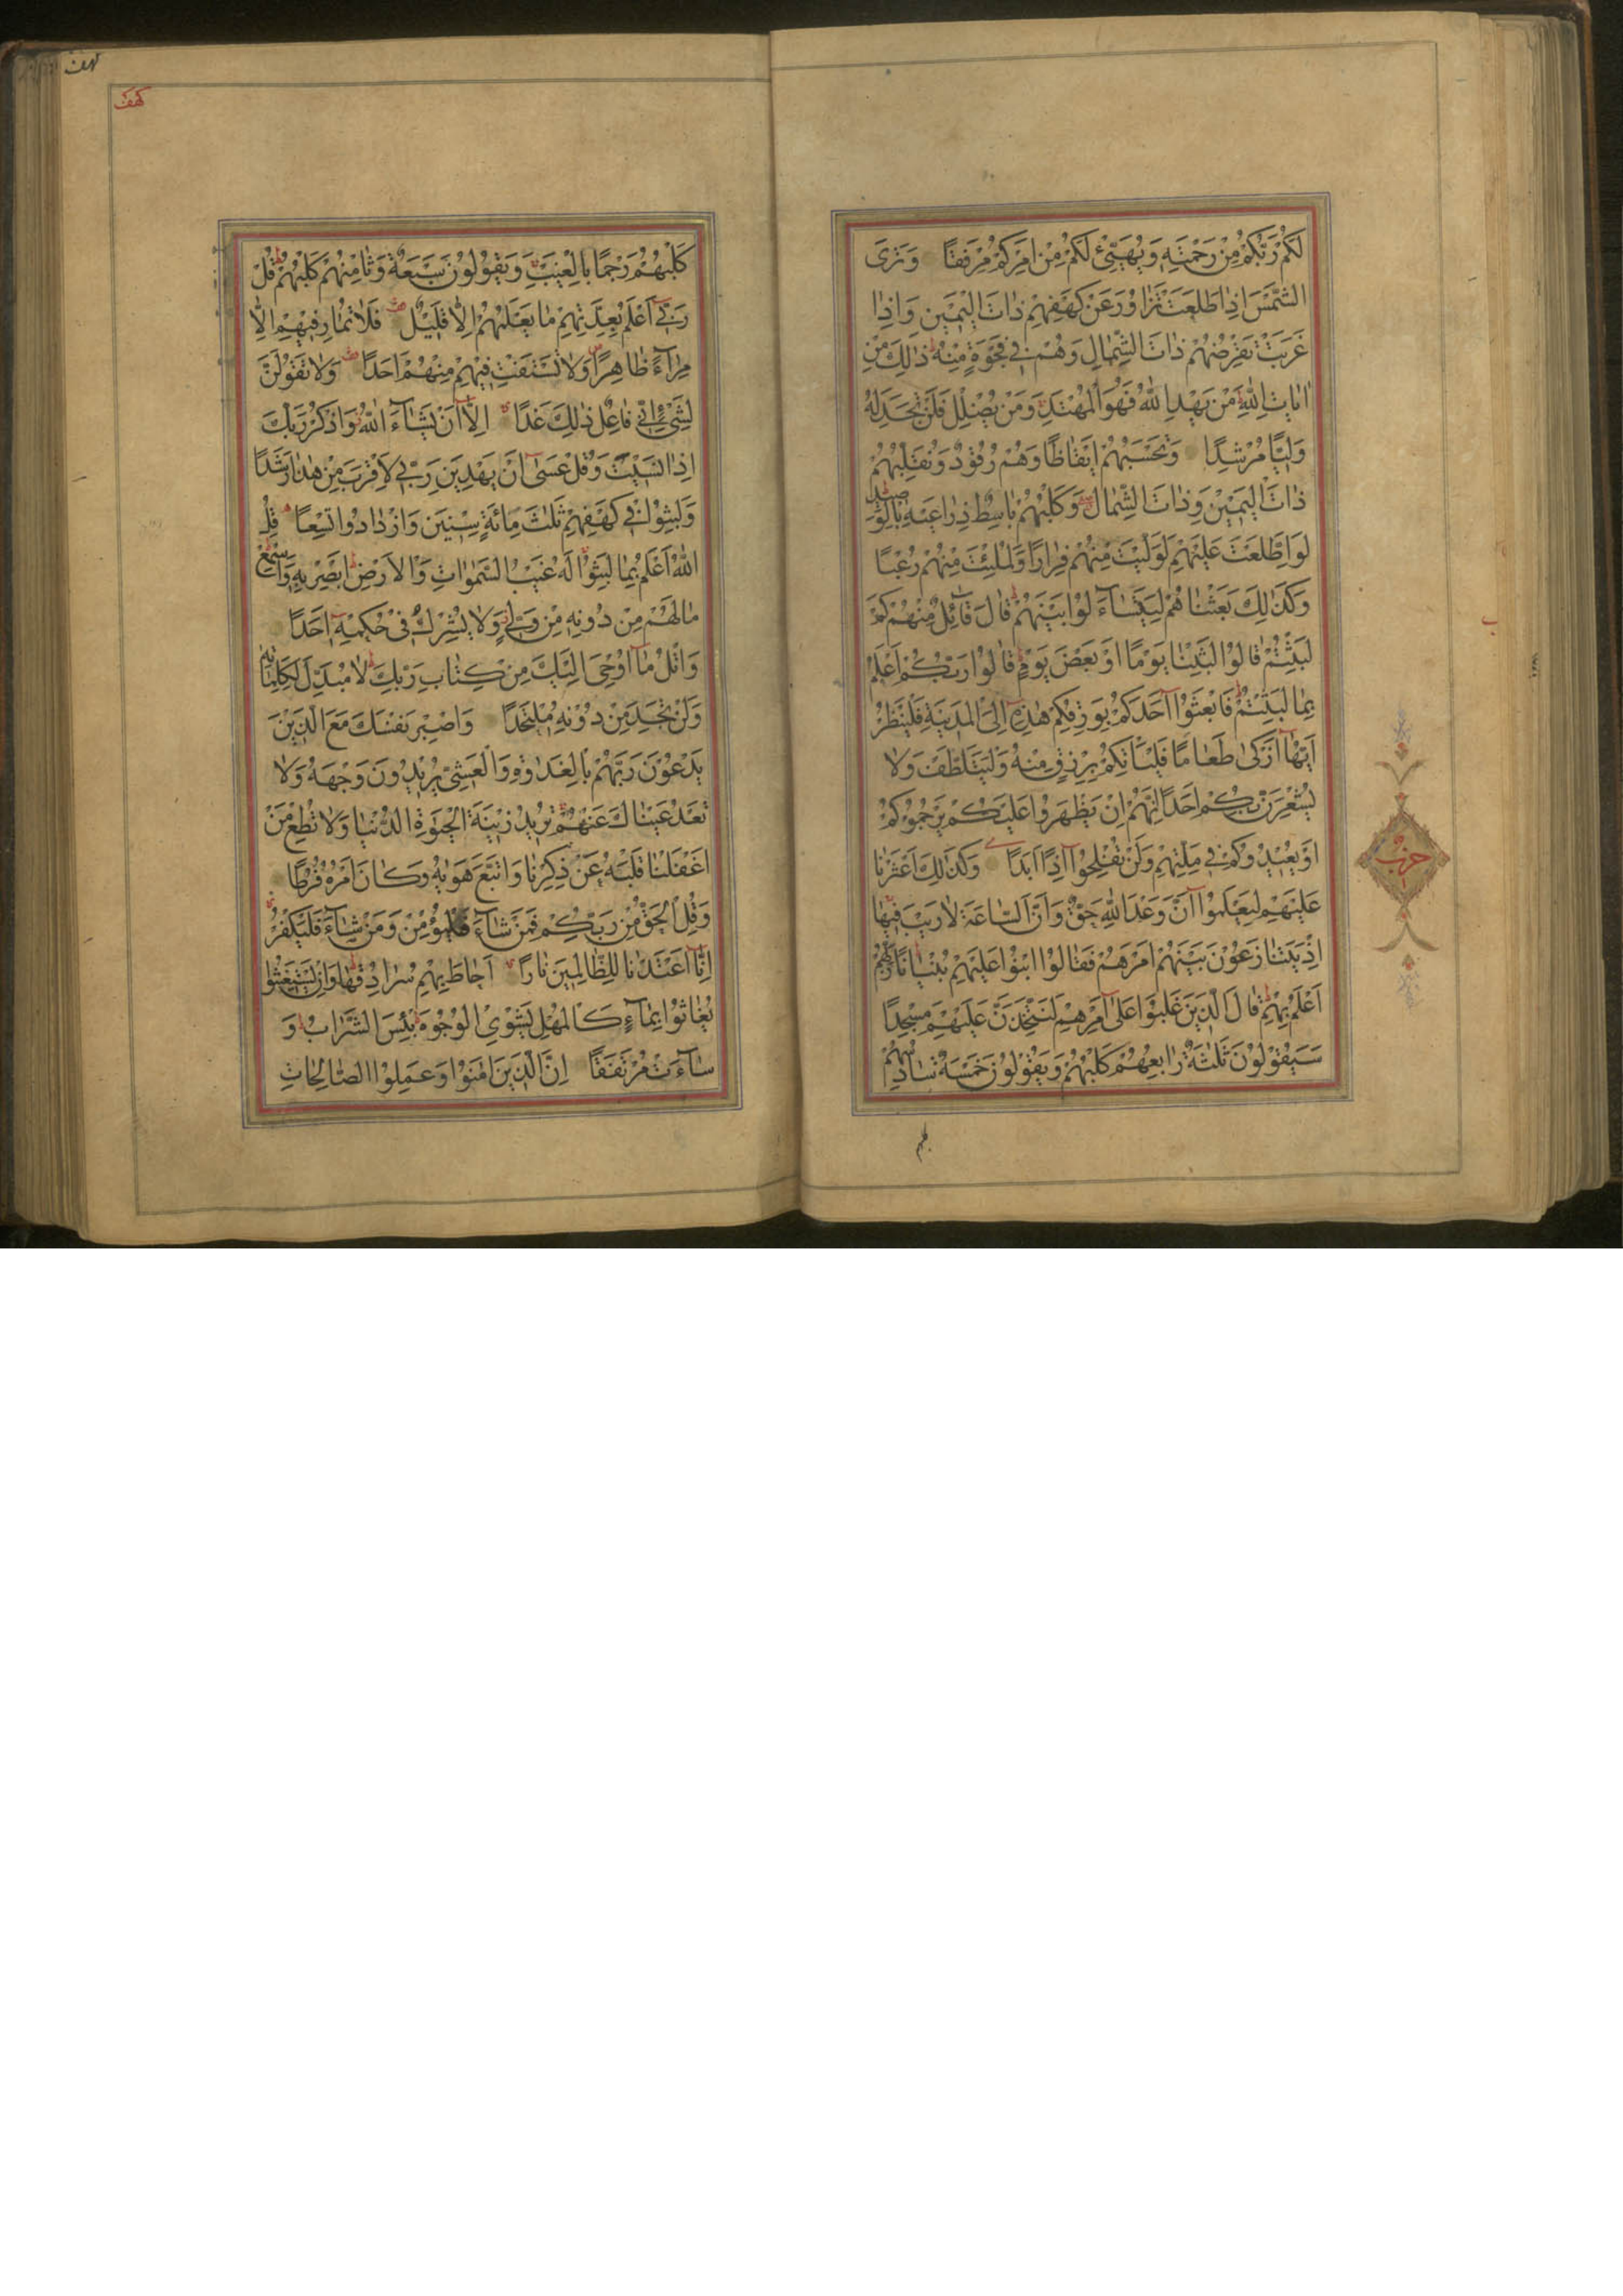 لَكُمْ رَبُّكُمْ مِنْ رَحْمَتِهِ وَيُهَيِّئْ لَكُمْ مِنْ اَمْرِكُمْ مِرْفَقًا وَتَرَى
الشَّمْسَ اِذَا طَلَعَتْ تَزَاوَرُ عَنْ كَهْفِهِمْ ذَاتَ الْيَمِينِ وَاِذَا
غَرَبَتْ تَقْرِضُهُمْ ذَاتَ الشِّمَالِ وَهُمْ فِي فَجْوَةٍ مِنْهُ ذٰلِكَ مِنْ
اٰيَاتِ اللّٰهِ مَنْ يَهْدِ اللّٰهُ فَهُوَ الْمُهْتَدِ وَمَنْ يُضْلِلْ فَلَنْ تَجِدَ لَهُ
وَلِيًّا مُرْشِدًا وَتَحْسَبُهُمْ اَيْقَاظًا وَهُمْ رُقُودٌ وَنُقَلِّبُهُمْ
ذَاتَ الْيَمِينِ وَذَاتَ الشِّمَالِ وَكَلْبُهُمْ بَاسِطٌ ذِرَاعَيْهِ بِالْوَصِيدِ
لَوِ اطَّلَعْتَ عَلَيْهِمْ لَوَلَّيْتَ مِنْهُمْ فِرَارًا وَلَمُلِئْتَ مِنْهُمْ رُعْبًا
وَكَذٰلِكَ بَعَثْنَاهُمْ لِيَتَسَاءَلُوا بَيْنَهُمْ قَالَ قَائِلٌ مِنْهُمْ كَمْ
لَبِثْتُمْ قَالُوا لَبِثْنَا يَوْمًا اَوْ بَعْضَ يَوْمٍ قَالُوا رَبُّكُمْ اَعْلَمُ
بِمَا لَبِثْتُمْ فَابْعَثُوا اَحَدَكُمْ بِوَرِقِكُمْ هٰذِهِ اِلَى الْمَدِينَةِ فَلْيَنْظُرْ
اَيُّهَا اَزْكٰى طَعَامًا فَلْيَأْتِكُمْ بِرِزْقٍ مِنْهُ وَلْيَتَلَطَّفْ وَلَا
يُشْعِرَنَّ بِكُمْ اَحَدًا اِنَّهُمْ اِنْ يَظْهَرُوا عَلَيْكُمْ يَرْجُمُوكُمْ
اَوْ يُعِيدُوكُمْ فِي مِلَّتِهِمْ وَلَنْ تُفْلِحُوا اِذًا اَبَدًا وَكَذٰلِكَ اَعْثَرْنَا
عَلَيْهِمْ لِيَعْلَمُوا اَنَّ وَعْدَ اللّٰهِ حَقٌّ وَاَنَّ السَّاعَةَ لَا رَيْبَ فِيهَا
اِذْ يَتَنَازَعُونَ بَيْنَهُمْ اَمْرَهُمْ فَقَالُوا ابْنُوا عَلَيْهِمْ بُنْيَانًا رَبُّهُمْ
اَعْلَمُ بِهِمْ قَالَ الَّذِينَ غَلَبُوا عَلٰى اَمْرِهِمْ لَنَتَّخِذَنَّ عَلَيْهِمْ مَسْجِدًا
سَيَقُولُونَ ثَلٰثَةٌ رَابِعُهُمْ كَلْبُهُمْ وَيَقُولُونَ خَمْسَةٌ سَادِسُهُمْ
حزب
كهف
كهف
كَلْبُهُمْ رَجْمًا بِالْغَيْبِ وَيَقُولُونَ سَبْعَةٌ وَثَامِنُهُمْ كَلْبُهُمْ قُلْ
رَبِّي اَعْلَمُ بِعِدَّتِهِمْ مَا يَعْلَمُهُمْ اِلَّا قَلِيلٌ فَلَا تُمَارِ فِيهِمْ اِلَّا
مِرَاءً ظَاهِرًا وَلَا تَسْتَفْتِ فِيهِمْ مِنْهُمْ اَحَدًا وَلَا تَقُولَنَّ
لِشَيْءٍ اِنِّي فَاعِلٌ ذٰلِكَ غَدًا اِلَّا اَنْ يَشَاءَ اللّٰهُ وَاذْكُرْ رَبَّكَ
اِذَا نَسِيتَ وَقُلْ عَسٰى اَنْ يَهْدِيَنِ رَبِّي لِاَقْرَبَ مِنْ هٰذَا رَشَدًا
وَلَبِثُوا فِي كَهْفِهِمْ ثَلٰثَ مِائَةٍ سِنِينَ وَازْدَادُوا تِسْعًا قُلِ
اللّٰهُ اَعْلَمُ بِمَا لَبِثُوا لَهُ غَيْبُ السَّمٰوَاتِ وَالْاَرْضِ اَبْصِرْ بِهِ وَاَسْمِعْ
مَا لَهُمْ مِنْ دُونِهِ مِنْ وَلِيٍّ وَلَا يُشْرِكُ فِي حُكْمِهِ اَحَدًا
وَاتْلُ مَا اُوحِيَ اِلَيْكَ مِنْ كِتَابِ رَبِّكَ لَا مُبَدِّلَ لِكَلِمَاتِهِ
وَلَنْ تَجِدَ مِنْ دُونِهِ مُلْتَحَدًا وَاصْبِرْ نَفْسَكَ مَعَ الَّذِينَ
يَدْعُونَ رَبَّهُمْ بِالْغَدٰوةِ وَالْعَشِيِّ يُرِيدُونَ وَجْهَهُ وَلَا
تَعْدُ عَيْنَاكَ عَنْهُمْ تُرِيدُ زِينَةَ الْحَيٰوةِ الدُّنْيَا وَلَا تُطِعْ مَنْ
اَغْفَلْنَا قَلْبَهُ عَنْ ذِكْرِنَا وَاتَّبَعَ هَوٰيهُ وَكَانَ اَمْرُهُ فُرُطًا
وَقُلِ الْحَقُّ مِنْ رَبِّكُمْ فَمَنْ شَاءَ فَلْيُؤْمِنْ وَمَنْ شَاءَ فَلْيَكْفُرْ
اِنَّا اَعْتَدْنَا لِلظَّالِمِينَ نَارًا اَحَاطَ بِهِمْ سُرَادِقُهَا وَاِنْ يَسْتَغِيثُوا
يُغَاثُوا بِمَاءٍ كَالْمُهْلِ يَشْوِي الْوُجُوهَ بِئْسَ الشَّرَابُ وَ
سَاءَتْ مُرْتَفَقًا اِنَّ الَّذِينَ اٰمَنُوا وَعَمِلُوا الصَّالِحَاتِ